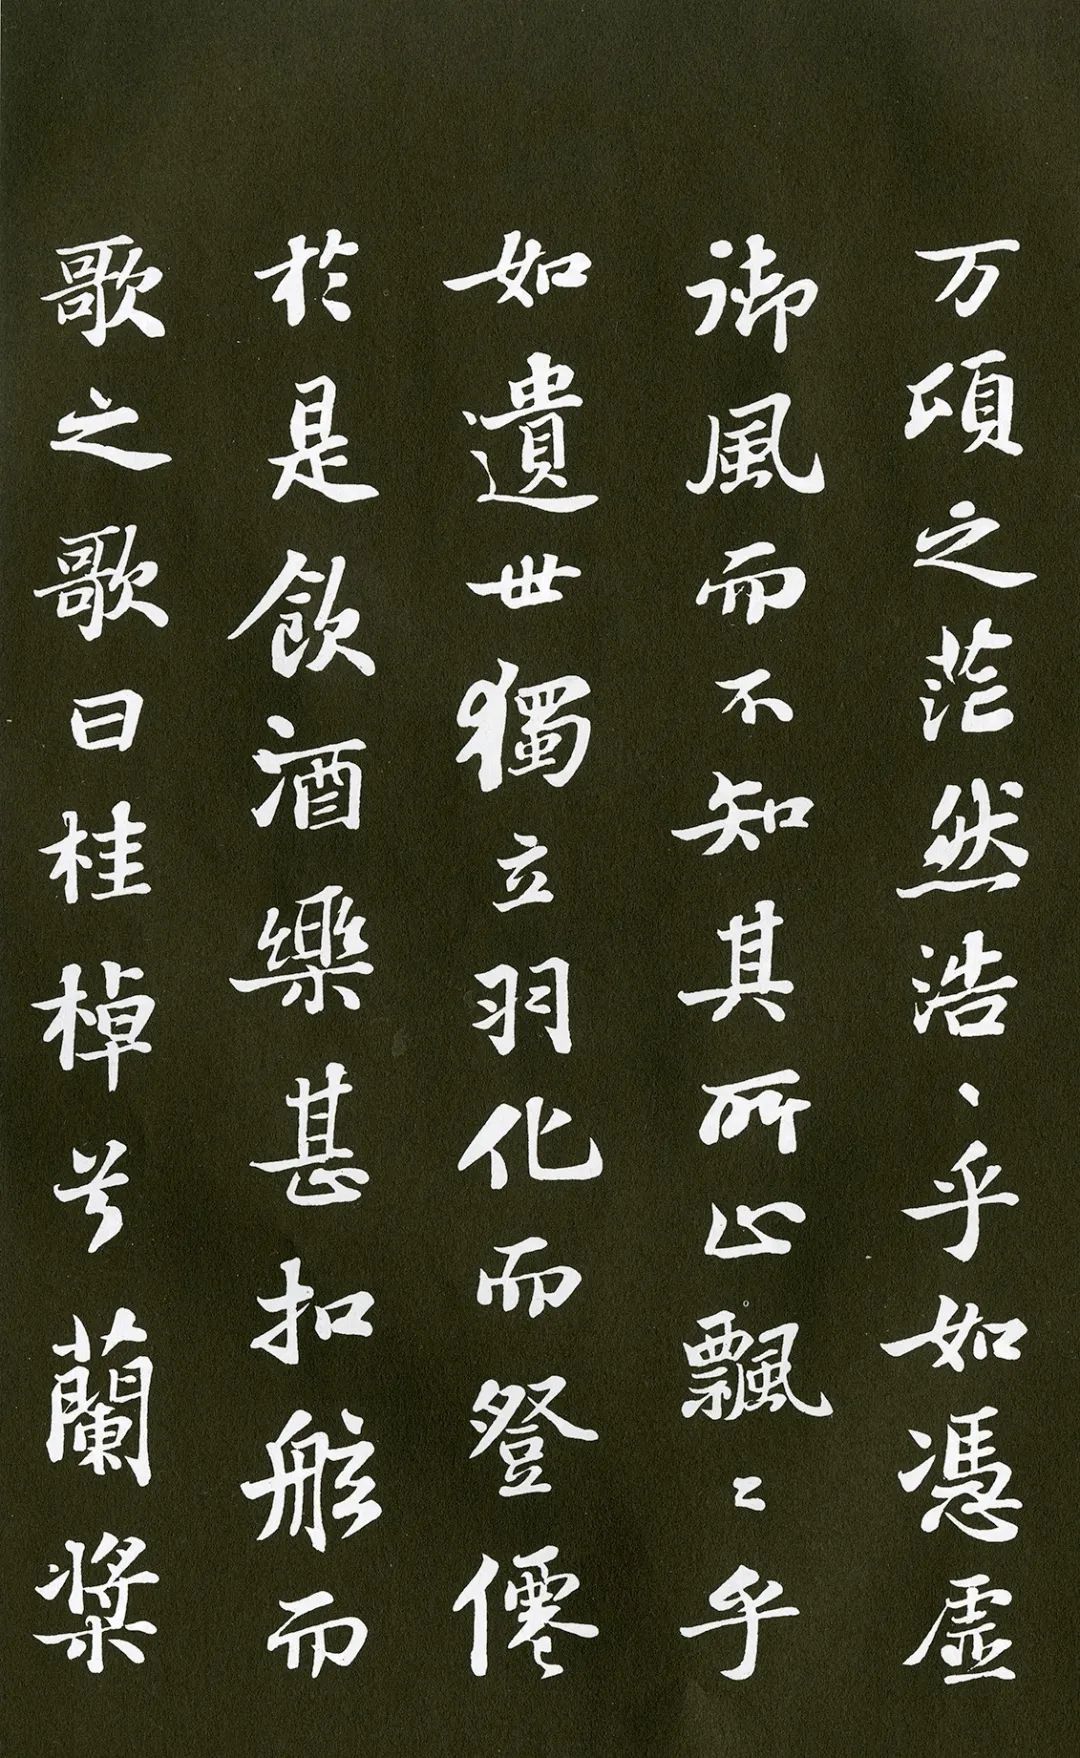 万頃之茫然浩〻乎如憑虛
御風而不知其所止飄〻乎
如遺世獨立羽化而登僊
於是飲酒樂甚扣舷而
歌之歌曰桂棹兮蘭槳